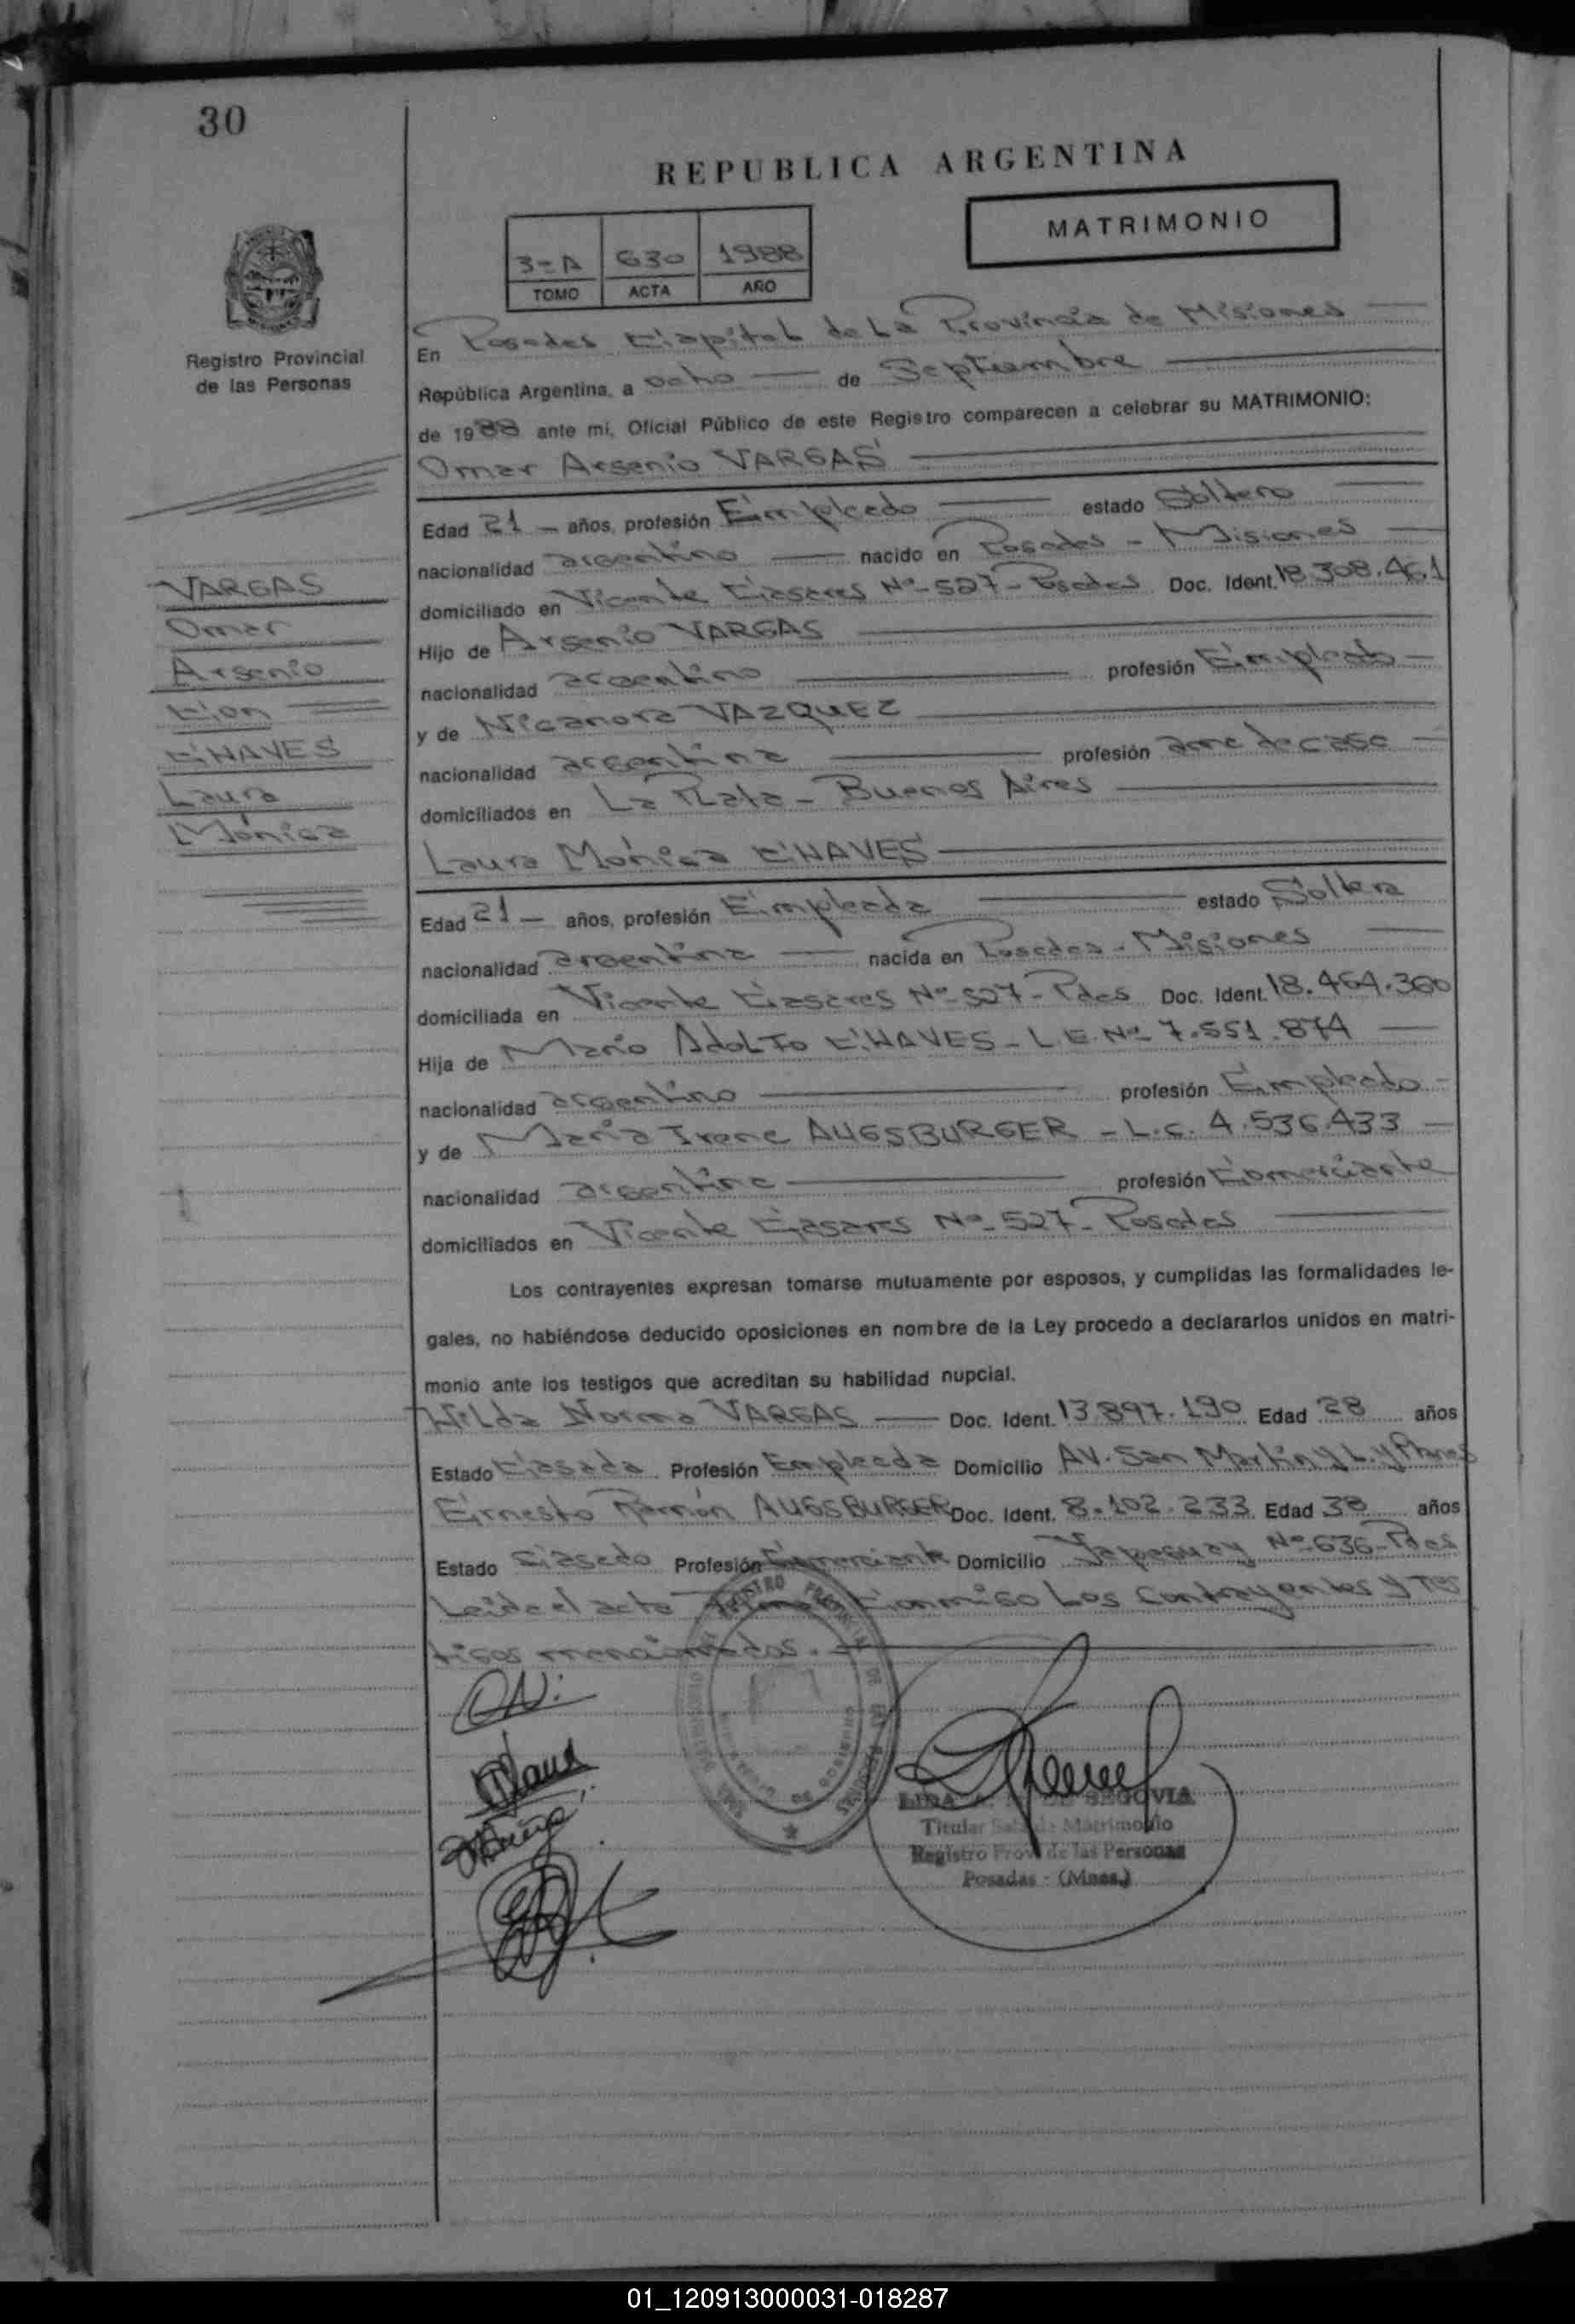 30
REPUBLICA ARGENTINA
MATRIMONIO
3=A 630 1988
TOMO ACTA AÑO
Registro Provincial
de las Personas
En Posadas Capital de La Provincia de Misiones
República Argentina, a ocho de Septiembre
de 1988 ante mi, Oficial Público de este Registro comparecen a celebrar su MATRIMONIO:
Omar Arsenio VARGAS
Edad 21 años, profesión Empleado estado Soltero
nacionalidad argentino nacido en Posadas - Misiones
domiciliado en Vicente Casares Nº-527-Posadas Doc. Ident. 18.308.461
Hijo de Arsenio VARGAS
nacionalidad argentino profesión Empleado
y de Nicanora VAZQUEZ
nacionalidad argentina profesión ama de casa
domiciliados en La Plata - Buenos Aires
VARGAS
Omar
Arsenio
Con
CHAVES
Laura
Mónica
Laura Mónica CHAVES
Edad 21 años, profesión Empleada estado Soltera
nacionalidad argentina nacida en Posadas - Misiones
domiciliada en Vicente Casares Nº-527-Pdas Doc. Ident. 18.464.360
Hija de Mario Adolfo CHAVES - L.E. Nº 7.551.874
nacionalidad argentino profesión Empleado
y de María Irene AUGSBURGER - L.C. 4.536.433
nacionalidad argentina profesión Comerciante
domiciliados en Vicente Casares Nº-527-Posadas
Los contrayentes expresan tomarse mutuamente por esposos, y cumplidas las formalidades le-
gales, no habiéndose deducido oposiciones en nombre de la Ley procedo a declararlos unidos en matri-
monio ante los testigos que acreditan su habilidad nupcial.
Hilda Norma VARGAS Doc. Ident. 13.897.190 Edad 28 años
Estado Casada Profesión Empleada Domicilio AV. San Martin y L. y Planes
Ernesto Ramón AUGSBURGER Doc. Ident. 8.102.233 Edad 38 años
Estado Casado Profesión Comerciante Domicilio Nº-636-Pdas
Leída el acta Conmigo Los Contrayentes y Tes
tigos mencionados.
SEGOVIA
Titular Sala de Matrimonio
Registro Prov. de las Personas
Posadas - (Mnes.)
01_120913000031-018287